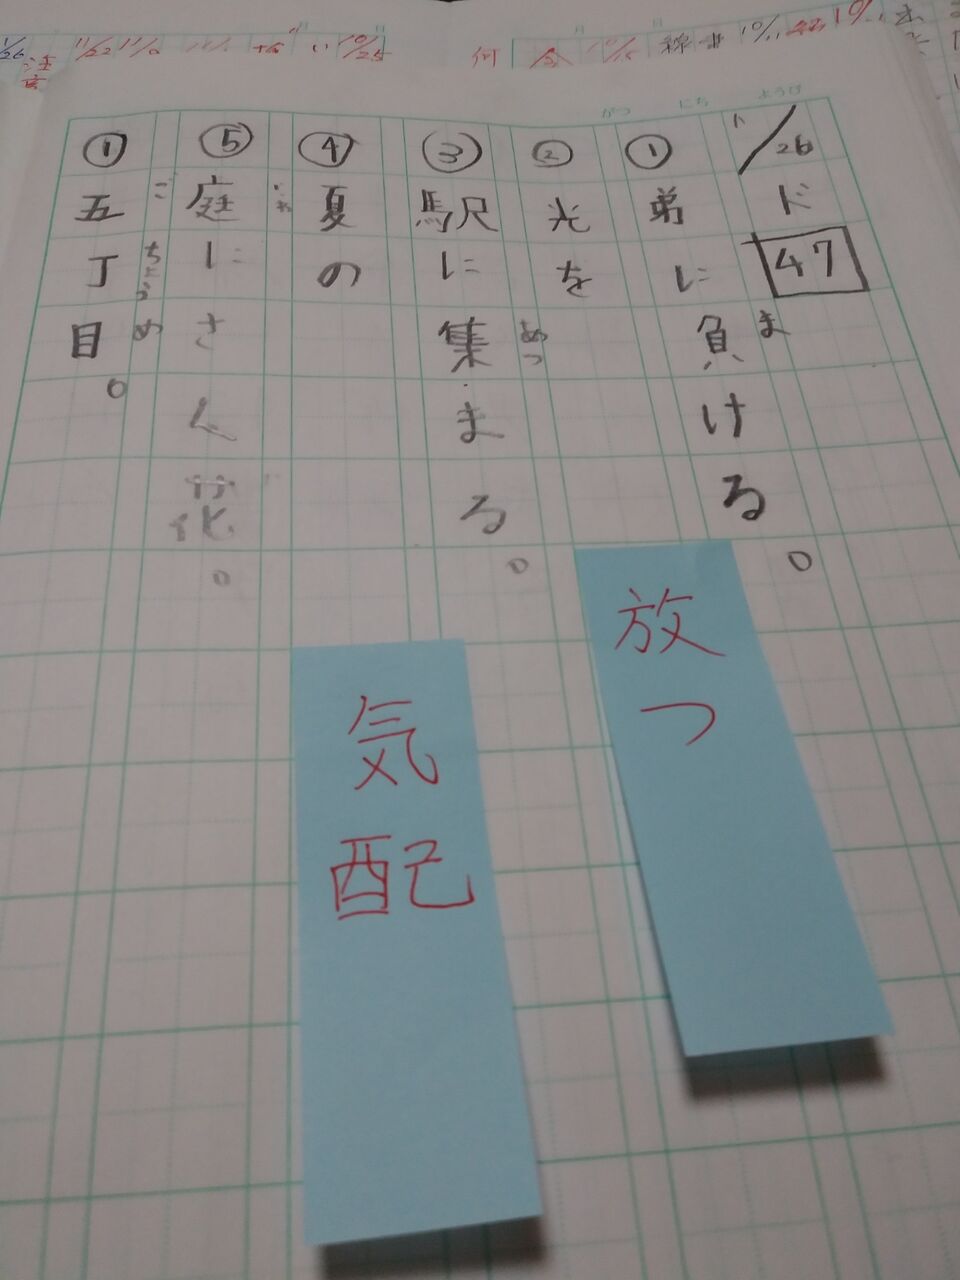 11/26 ド 47
がつ にち ようび
① 弟に負ける。
ま
② 光を
放つ
③ 駅に集まる。
あつ
④ 夏の
気配
⑤ 庭にさん花。
① 五丁目。
ご ちょう め